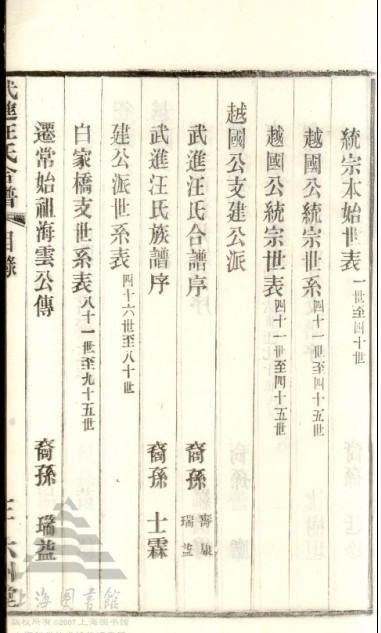 統宗本始世表 一世至四十世
越國公統宗世系 四十一世至四十五世
越國公統宗世表 四十一世至四十五世
越國公支建公派
武進汪氏合譜序 裔孫 齋康 瑞益
武進汪氏族譜序 裔孫 士霖
建公派世系表 四十六世至八十世
白家橋支世系表 八十一世至九十五世
遷常始祖海雲公傳 裔孫 瑞益
武進汪氏合譜 目錄
上海图书馆
版权所有©2007上海图书馆